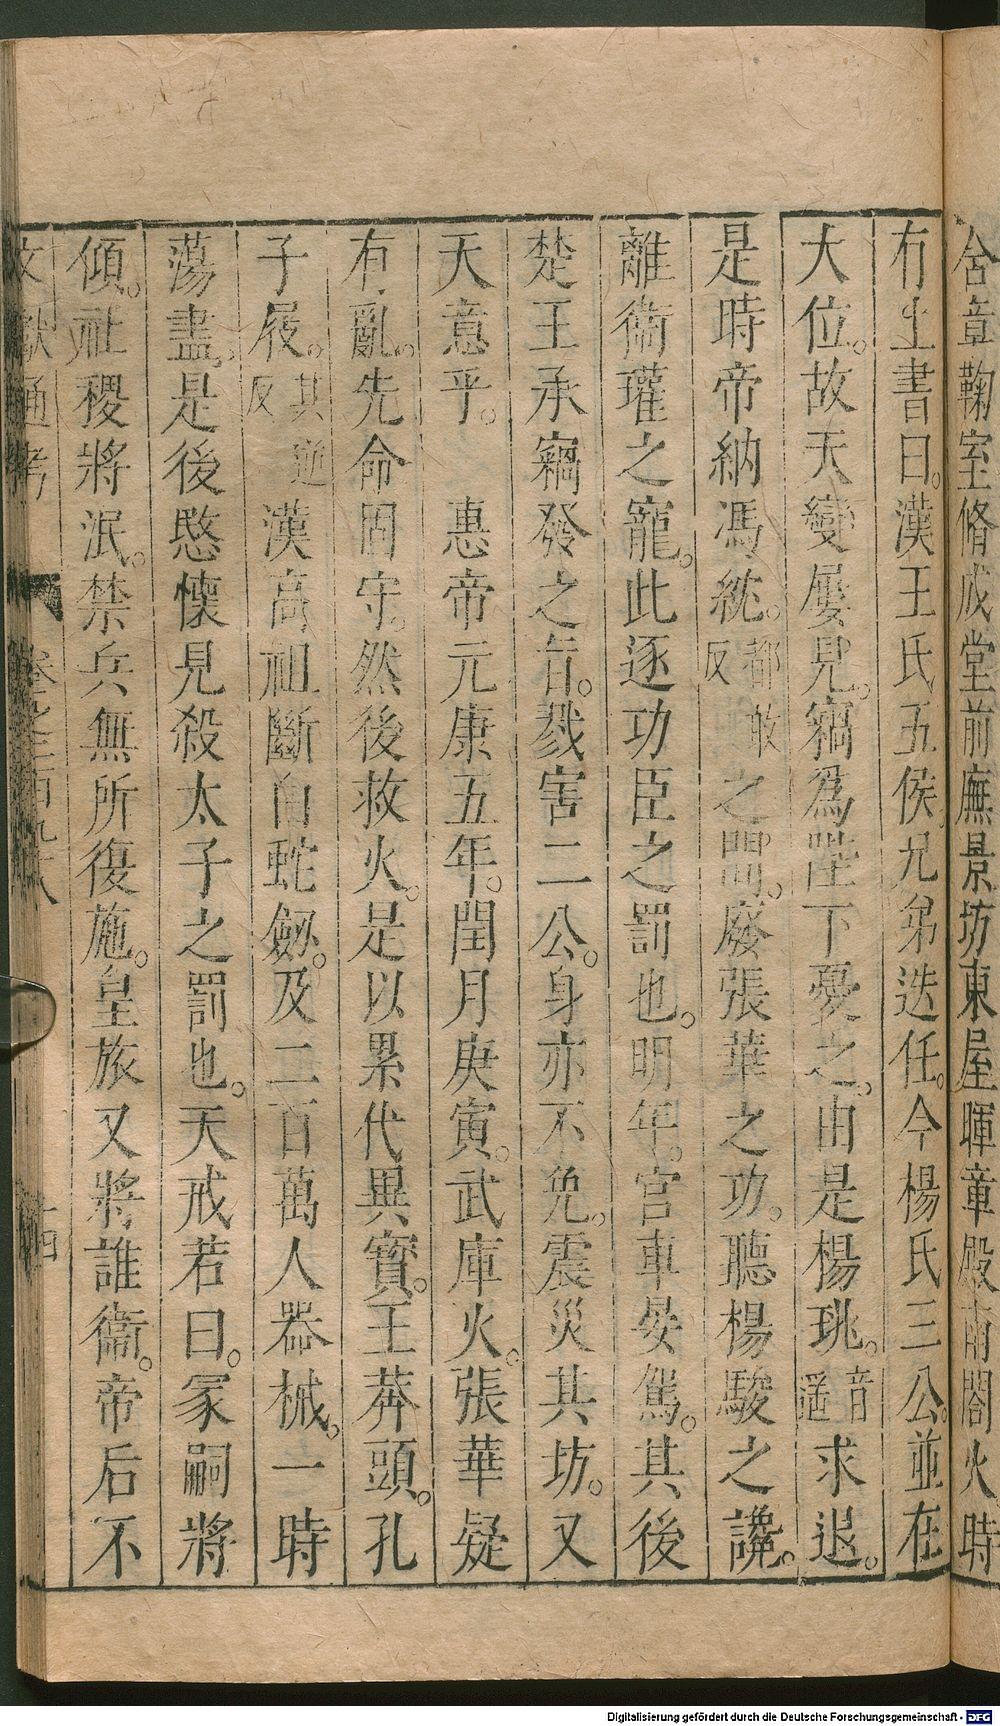 含章鞠室脩成堂前廡景坊東屋暉章殿南閣火時
有上書曰。漢王氏五侯兄弟迭任。今楊氏三公。並在
大位。故天變屢見。竊爲陛下憂之。由是楊珧。音遥求退。
是時帝納馮紞。都敢反之間。廢張華之功。聽楊駿之讒。
離衞瓘之寵。此逐功臣之罰也。明年。宮車晏駕。其後
楚王承竊發之旨。戮害二公。身亦不免。震災其坊。又
天意乎。 惠帝元康五年。閏月庚寅。武庫火。張華疑
有亂。先命固守。然後救火。是以累代異寶。王莽頭。孔
子屐。其逆反 漢高祖斷白蛇劒。及二百萬人器械。一時
蕩盡。是後愍懷見殺太子之罰也。天戒若曰。冢嗣將
傾。社稷將泯。禁兵無所復施。皇旅又將誰衞。帝后不
文獻通考 卷之二百九十八 十四
Digitalisierung gefördert durch die Deutsche Forschungsgemeinschaft - DFG